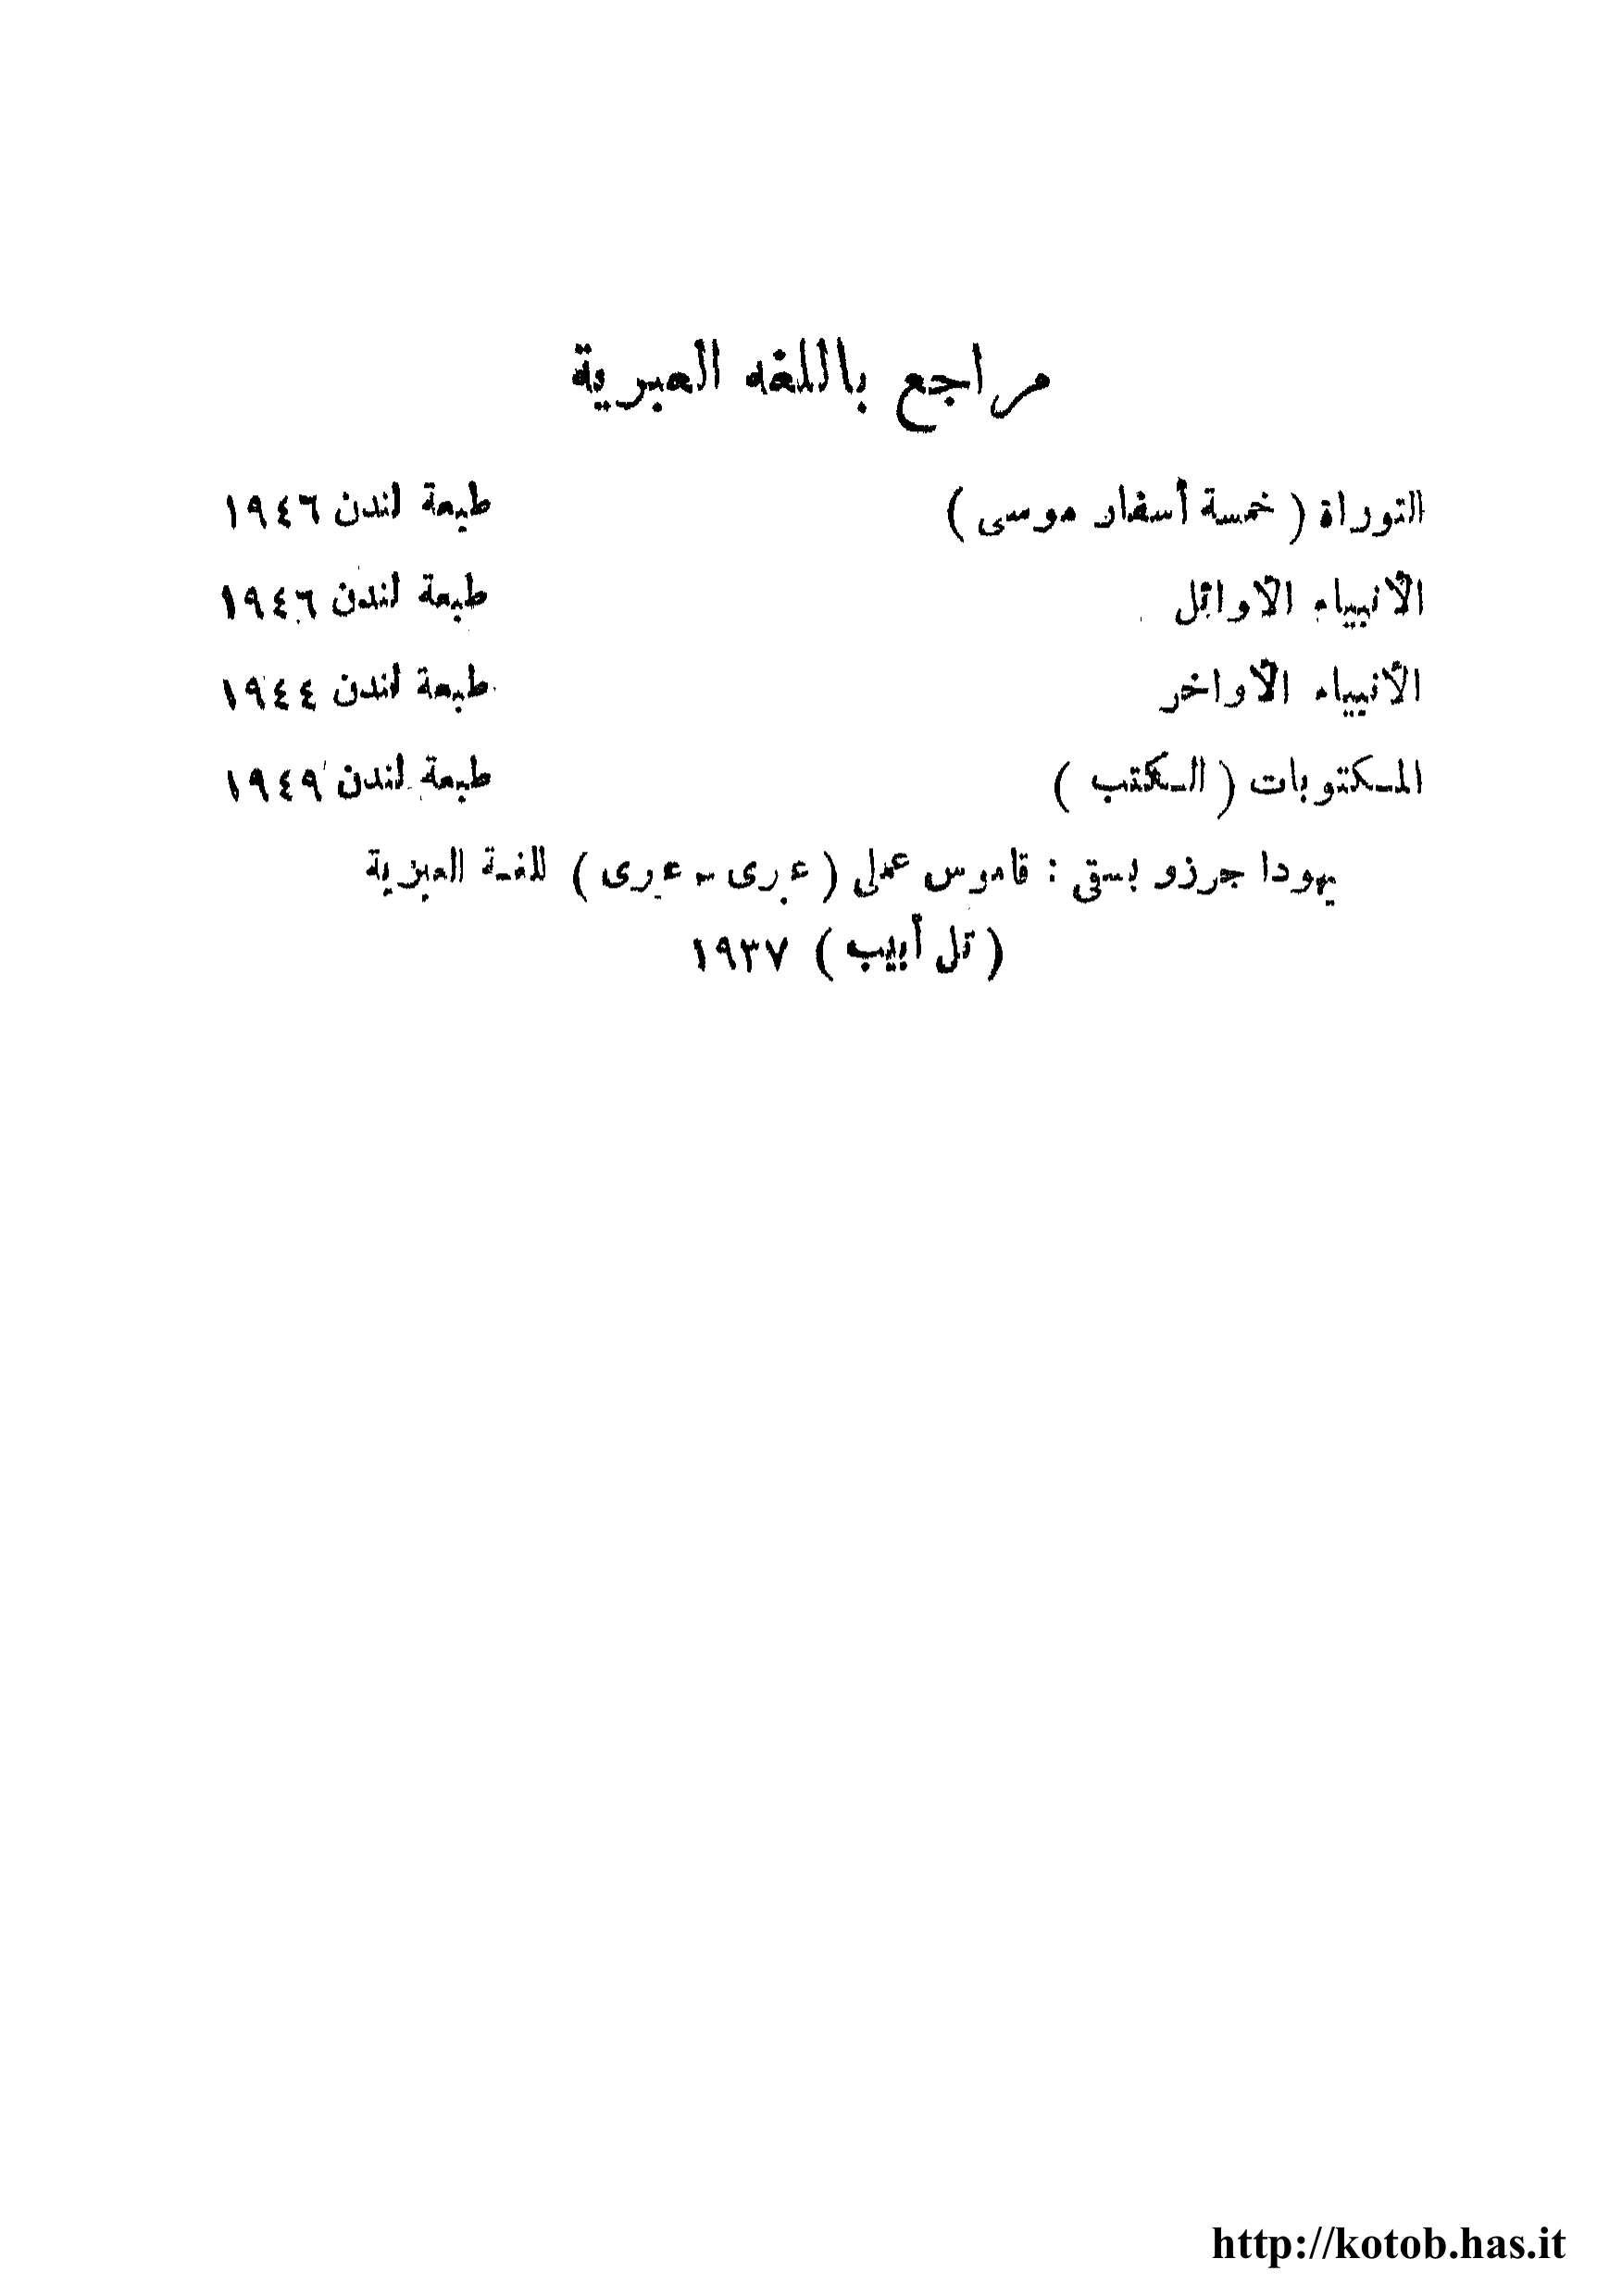 مراجع باللغه العبرية
التوراة ( خمسة أسفار موسى ) طبعة لندن ١٩٤٦
الأنبياء الاوائل طبعة لندن ١٩٤٦
الأنبياء الأواخر طبعة لندن ١٩٤٤
المكتوبات ( الكتب ) طبعة لندن ١٩٤٩
يهودا جرزو بسقى : قاموس عملى ( عبرى - عبرى ) للغة العبرية
( تل أبيب ) ١٩٣٧
http://kotob.has.it